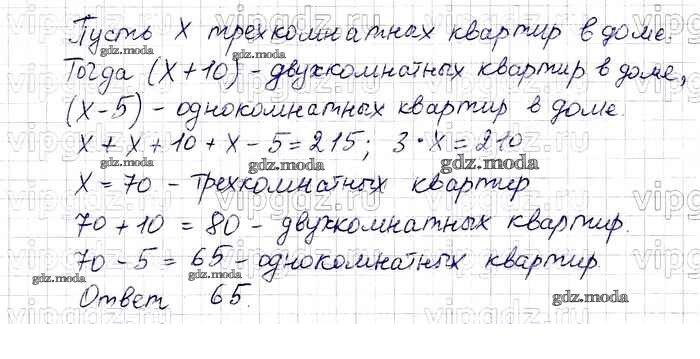 Пусть х трехкомнатных квартир в доме.
Тогда (х+10) - двухкомнатных квартир в доме,
(х-5) - однокомнатных квартир в доме.
х + х + 10 + х - 5 = 215; 3 · х = 210
х = 70 - трехкомнатных квартир
70 + 10 = 80 - двухкомнатных квартир.
70 - 5 = 65 - однокомнатных квартир.
Ответ 65.
gdz.moda
gdz.moda
gdz.moda
gdz.moda
gdz.moda
gdz.moda
gdz.moda
gdz.moda
gdz.moda
vipgdz.ru